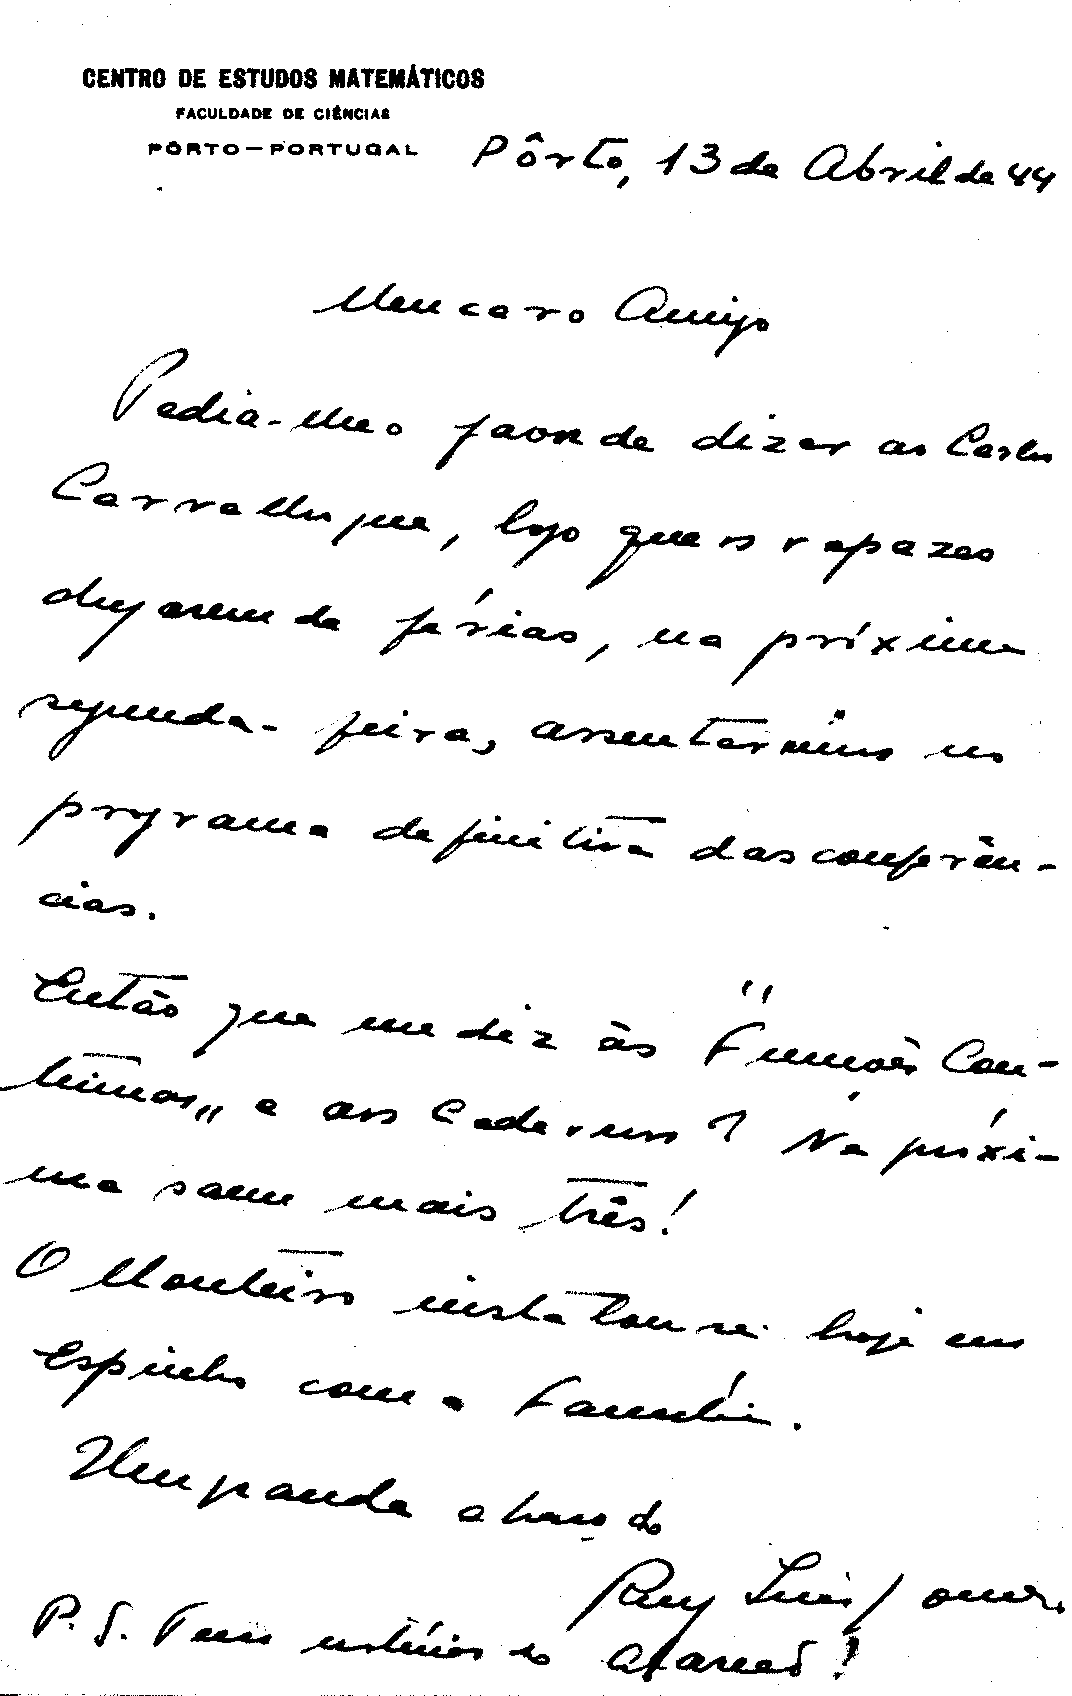 CENTRO DE ESTUDOS MATEMÁTICOS
FACULDADE DE CIÊNCIAS
PÔRTO — PORTUGAL
Pôrto, 13 de Abril de 44
Meu caro Amigo
Pedia-lhe o favor de dizer ao Carlos
Carvalho que, logo que os rapazes
chegarem de férias, na próxima
segunda-feira, assentarmos no
programa definitivo das conferên-
cias.
Então que me diz às "Funções Con-
tínuas„ e aos Cadernos? Na próxi-
ma saem mais três!
O Monteiro instalou-se hoje em
Espinho com a Família.
Um grande abraço do
Ruy Luís Gomes
P. S. Temos notícias do